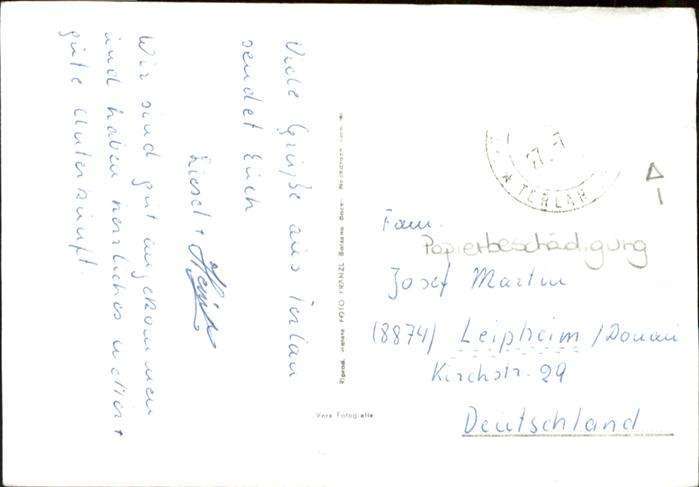 Viele Grüße aus Terlan
sendet Euch
Liesel +
Wir sind gut angekommen
und haben herrliches Wetter +
gute Unterkunft.
Riprod. vietata FOTO FRANZL Bolzano Bozen
Vera Fotografia
27.-7
TERLAN
Fam.
Papierbeschädigung
Josef Martin
(8874) Leipheim /Donau
Kirchstr. 29
Deutschland